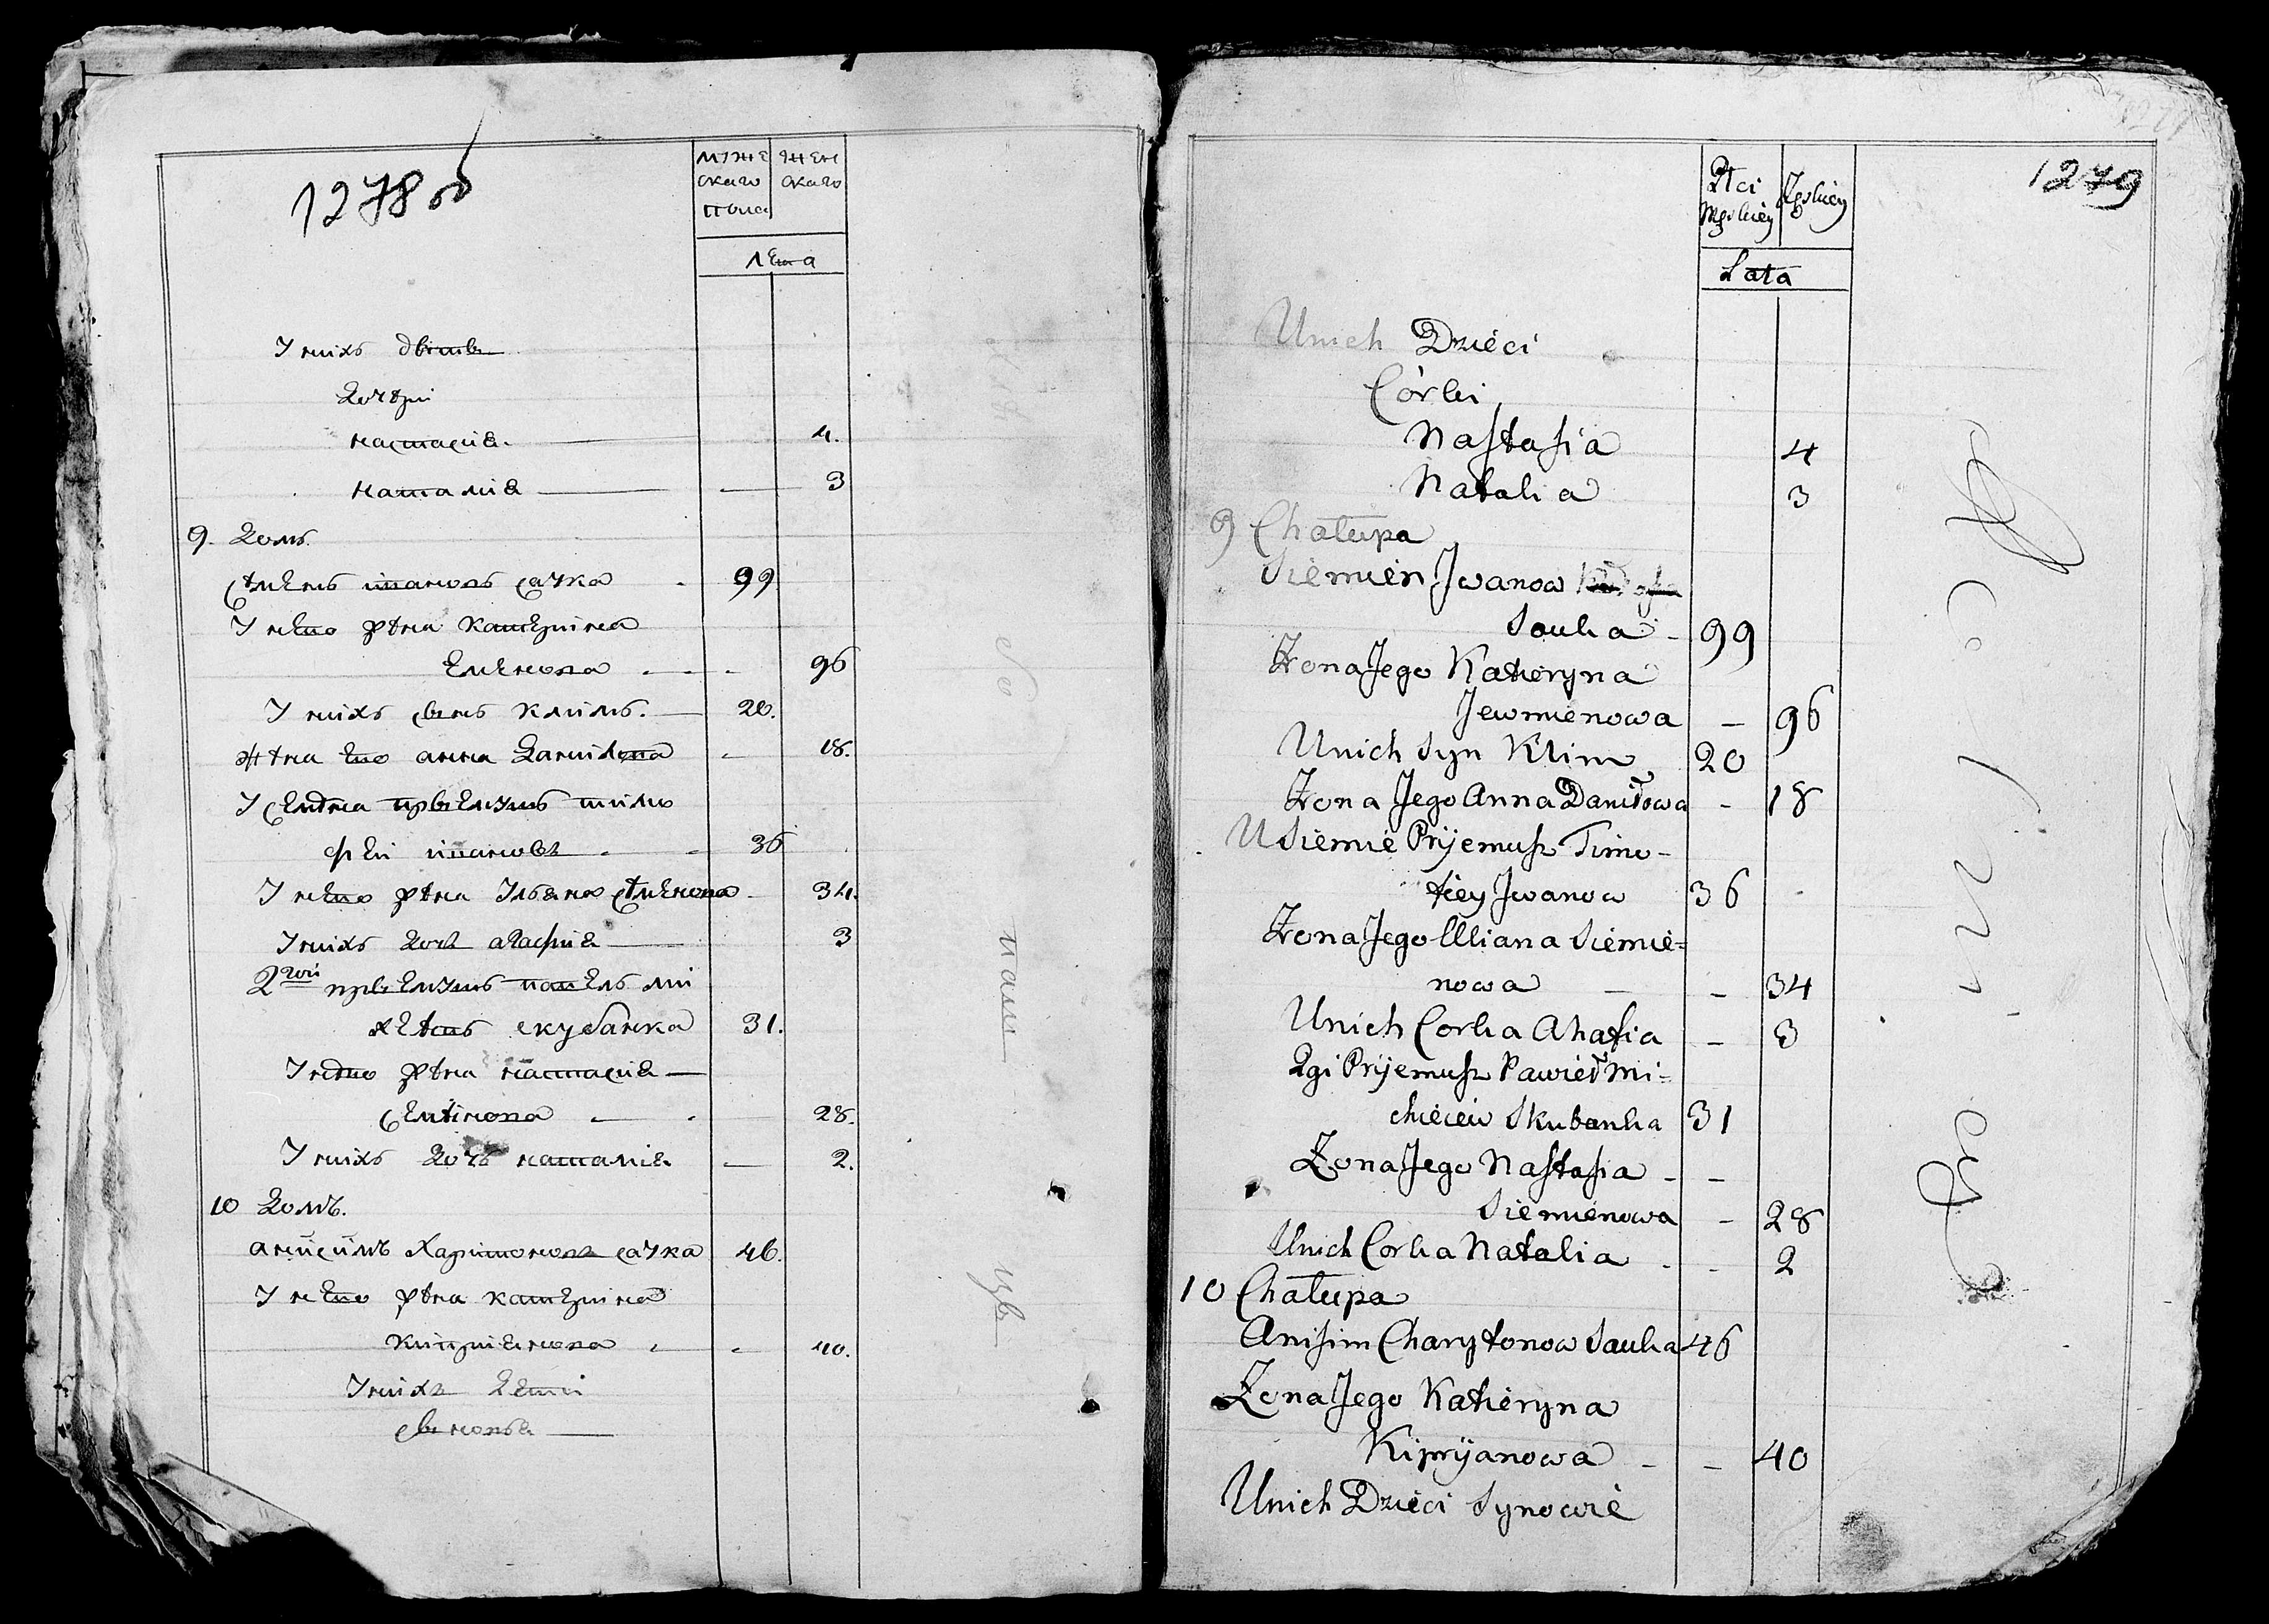 1278 об
мужескаго пола
женскаго
лета
У нихъ дѣти
дочери
настасия 4.
наталия 3
9. домъ.
семенъ ивановъ саука 99
У него жена катерина
96
У нихъ сынъ климъ. 20.
жена его анна данилова 18.
У семена приемушъ тимо
фей ивановъ 36
У него жена Ульяна семенова 34.
У нихъ дочь агафия 3
2гой приемушъ павелъ ми
хеевъ скубанка 31.
У него жена настасия
семенова 28.
У нихъ дочь наталия 2.
10 домъ.
анисимъ харитоновъ саука 46.
У него жена катерина
киприянова 40.
У нихъ дети
сыновья
1279
Płci Męskiey
Żęskiey
Lata
Unich Dzieci
Córki
Nastasia 4
Natalia 3
9 Chałupa
Siemien Jwanow
Sauka - 99
Żona Jego Katieryna
Jewmienowa - 96
Unich Syn Klim 20
Żona Jego Anna Daniłowa - 18
U Siemie Pryiemusz Timo-
tiey Jwanow 36
Żona Jego Uliana Siemie=
nowa - 34
Unich Corka Ahafia - 3
2gi Pryiemusz Pawieł Mi=
chieiew Skubanka 31
Żona Jego Nastasia - -
Siemienowa - 28
Unich Corka Natalia - - 2
10 Chałupa
Anisim Charytonow Sauka 46
Żona Jego Katieryna
Kipryianowa - - 40
Unich Dzieci Synowie